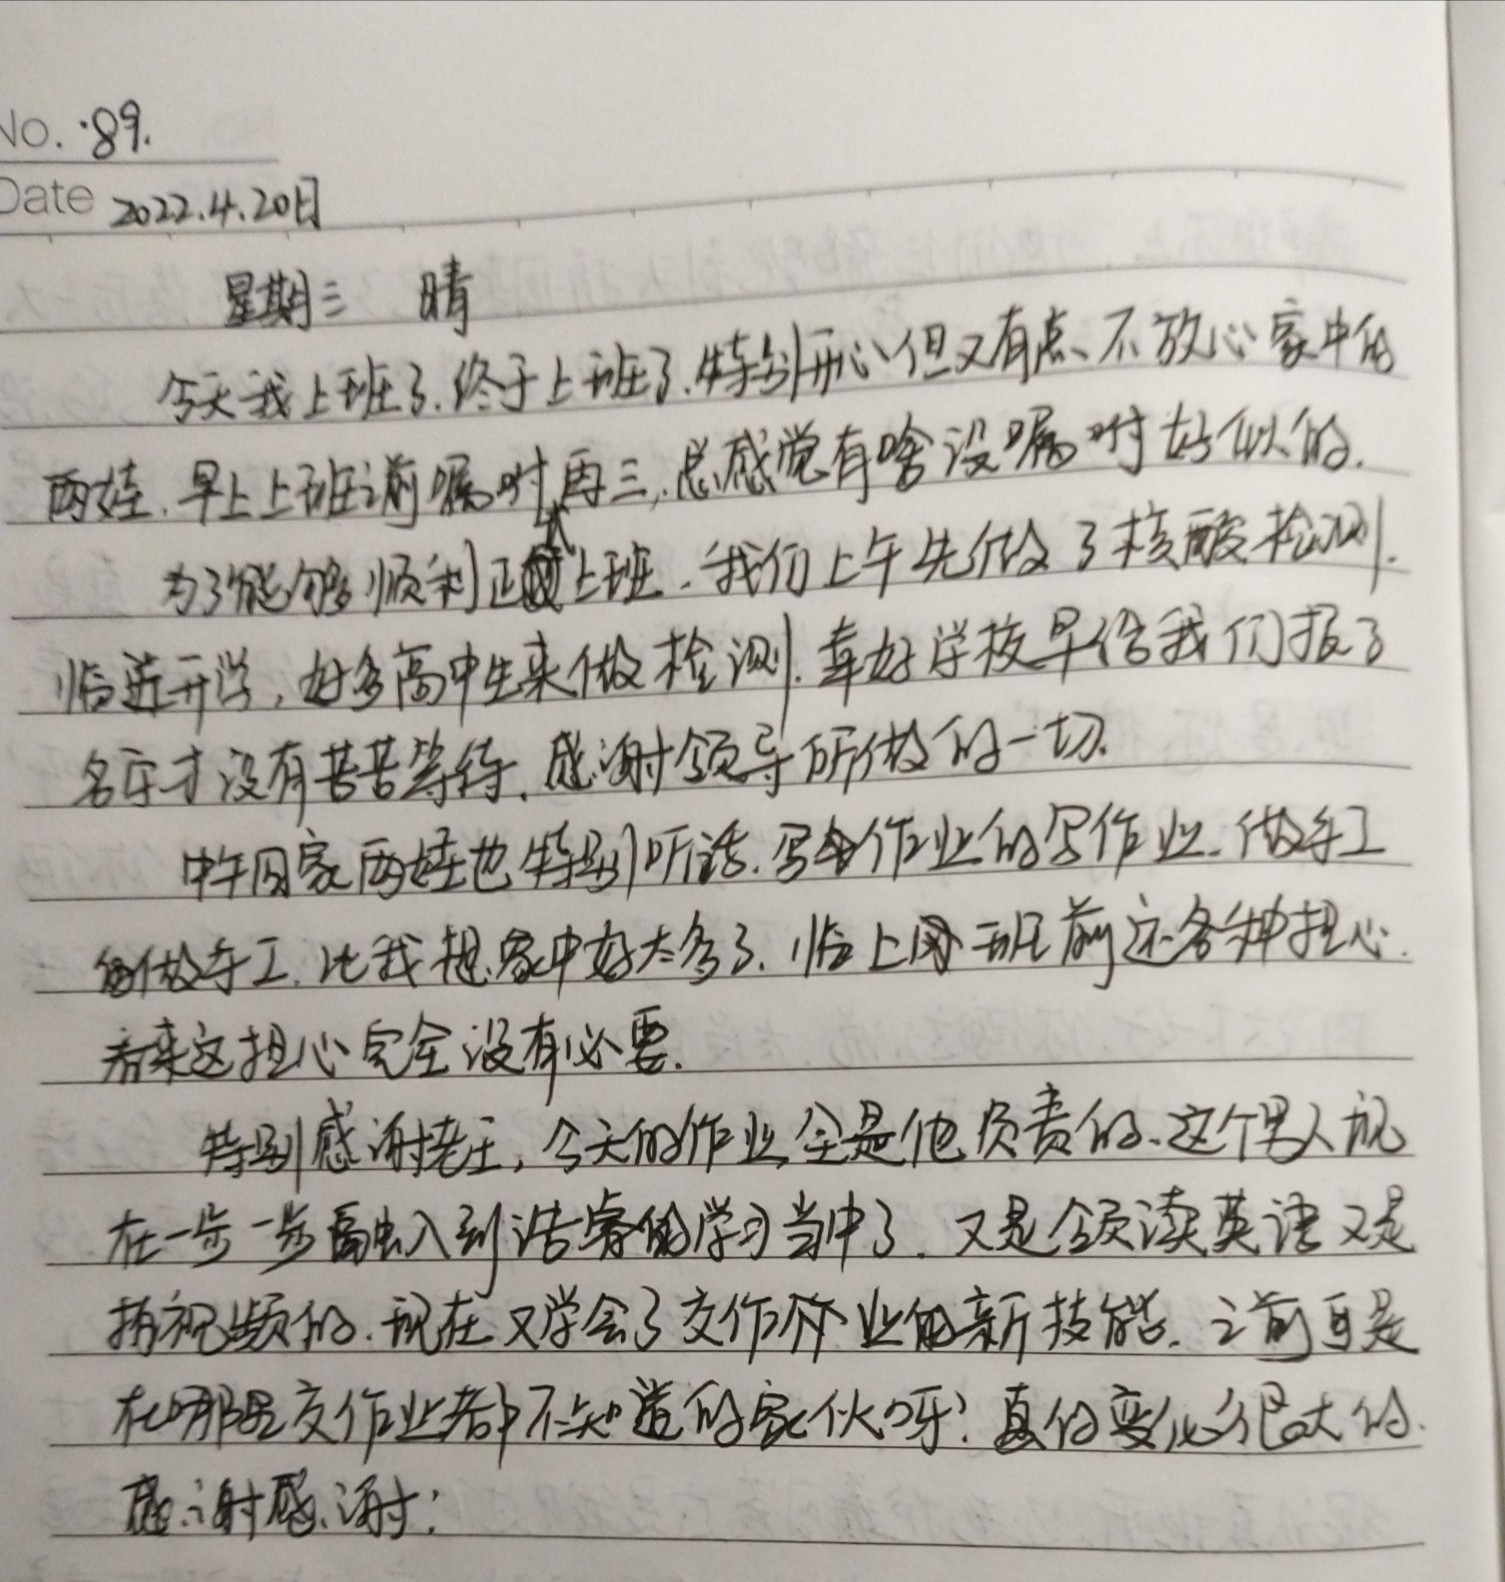 No. 89.
Date 2022.4.20日
星期三 晴
今天我上班了.终于上班了.特别开心但又有点、不放心家中的
两娃.早上上班前嘱咐再三,总感觉有啥没嘱咐好似的.
为了能够顺利正上班.我们上午先做了核酸检测.
临近开学,好多高中生来做检测.幸好学校早给我们报了
名字才没有苦苦等待.感谢领导所做的一切.
中午回家两娃也特别听话.写作业的写作业.做手工
的做手工.比我想象中好太多了.临上班前还各种担心.
看来这担心完全没有必要.
特别感谢老王,今天的作业全是他负责的.这个男人现
在一步一步融入到浩睿的学习当中了.又是领读英语又是
拍视频的.现在又学会了交作业的新技能.之前可是
在哪里交作业都不知道的家伙呀!真的变化很大的.
感谢感谢!